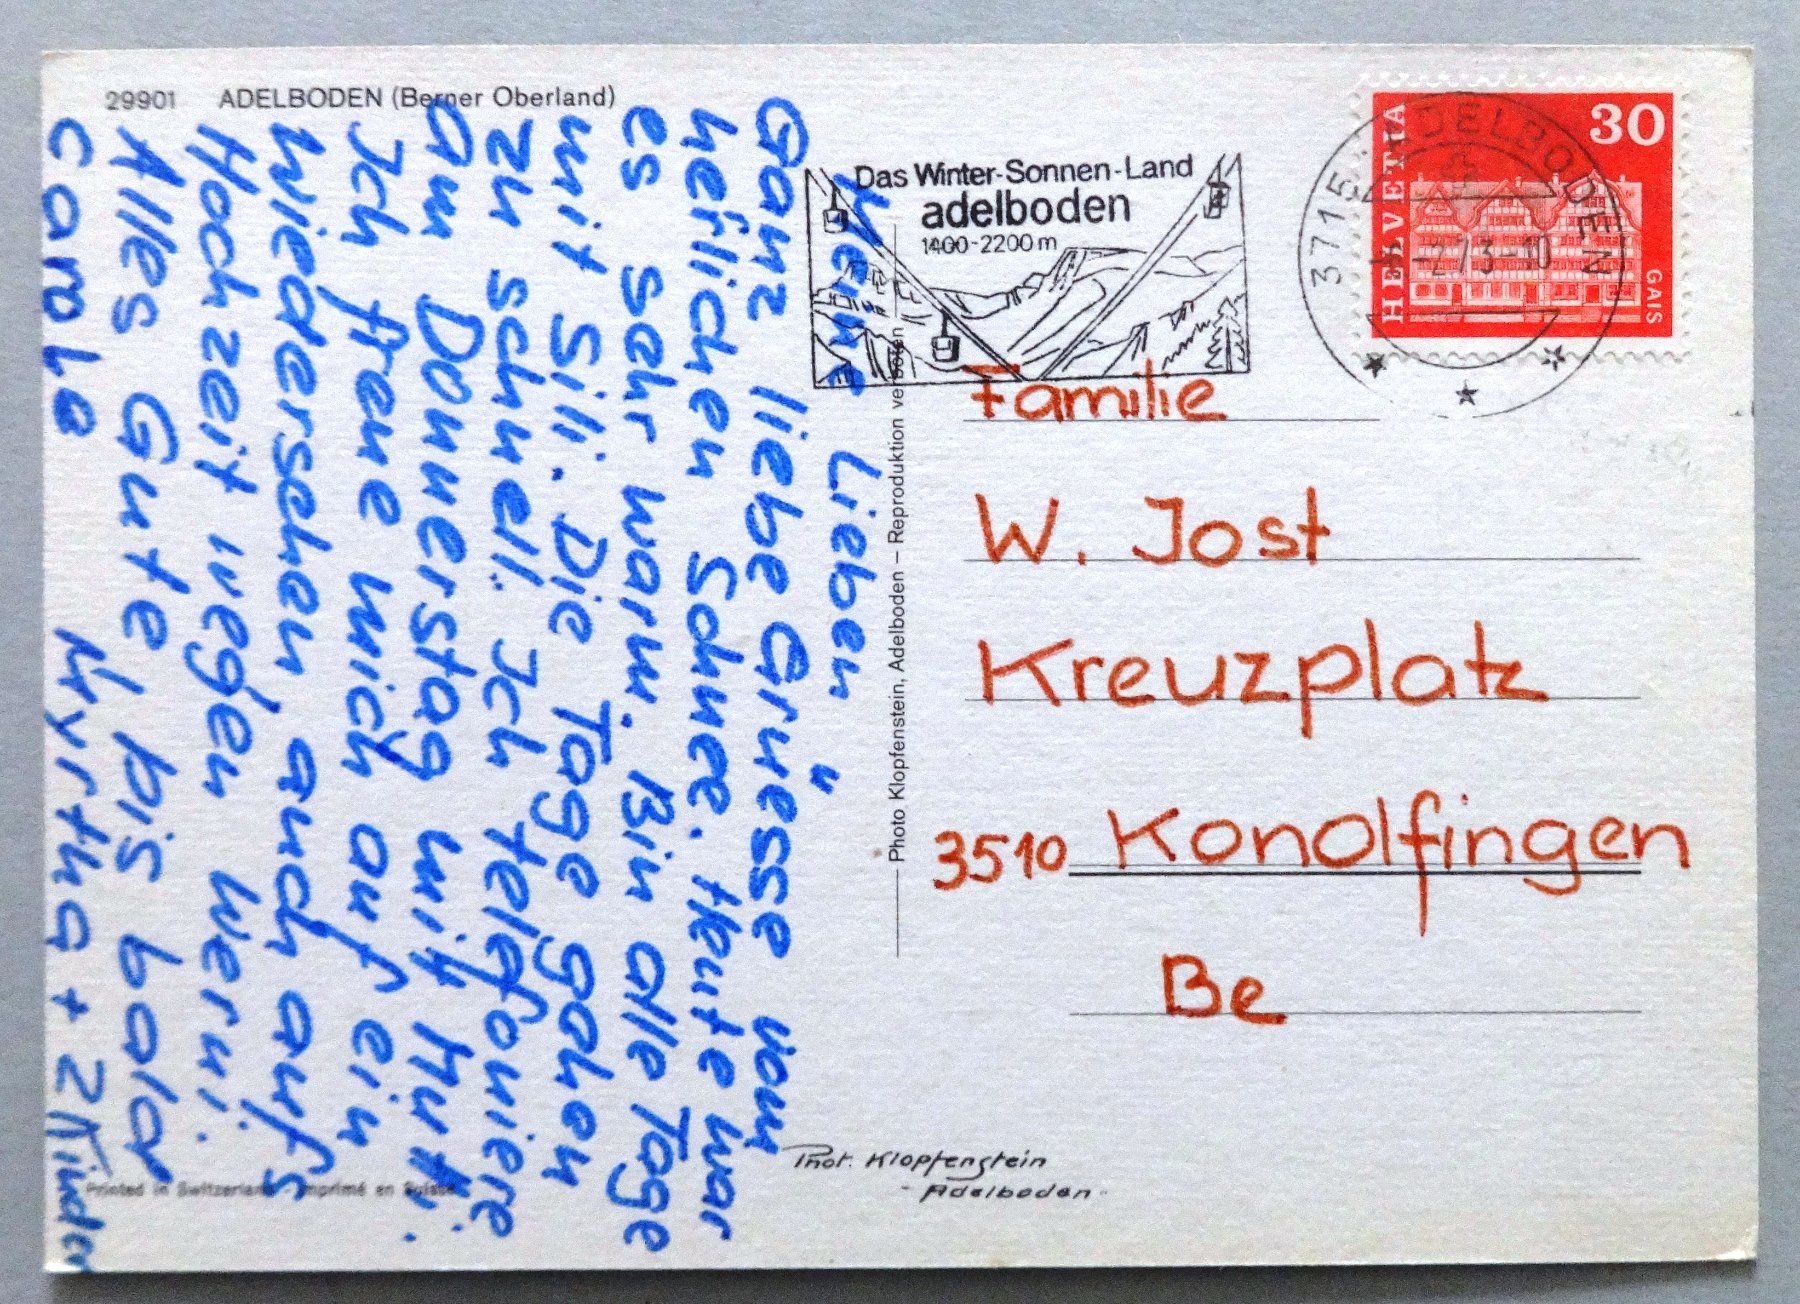 29901 ADELBODEN (Berner Oberland)
Meine Lieben
Ganz liebe Grüesse vom
herlichen Schnee. Heute war
es sehr warm. Bin alle Tage
mit Silli. Die Tage gehen
zu schnell. Ich telefoniere
am Donnerstag mit Mutti.
Ich freue mich auf ein
Wiedersehen auch aufs
Hochzeit wegen Werni.
Alles Gute bis bald
Carola Myrtha + 2 Kinder
Photo Klopfenstein, Adelboden – Reproduktion verboten
Das Winter-Sonnen-Land
adelboden
1400-2200 m
3715 ADELBODEN
73-10
HELVETIA
30
GAIS
Familie
W. Jost
Kreuzplatz
3510 Konolfingen
Be
Phot. Klopfenstein
- Adelboden -
Printed in Switzerland - Imprimé en Suisse